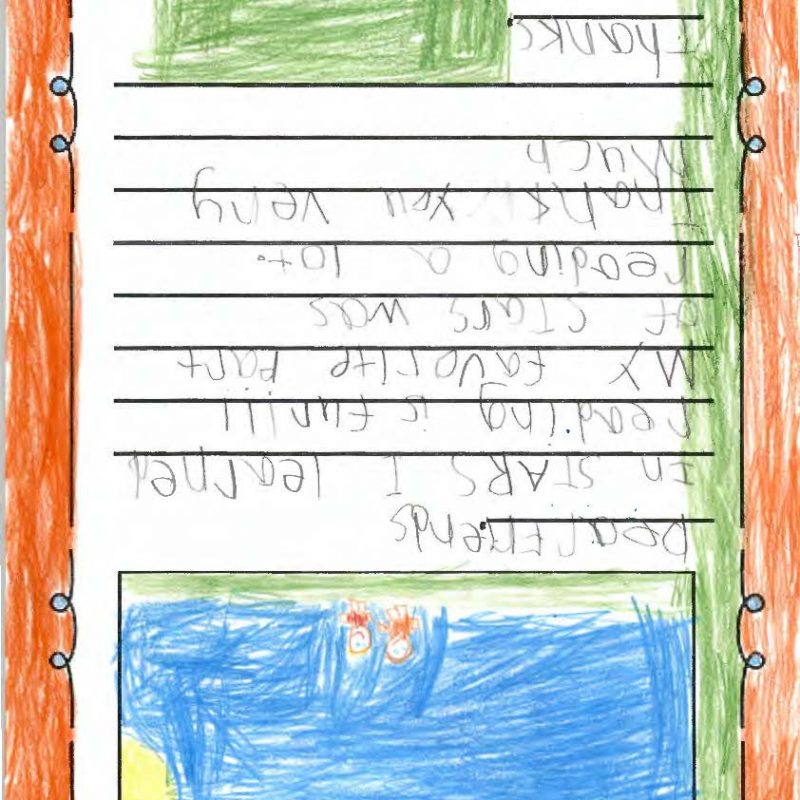 Dear Friends
In STARS I learned
reading is fun!!!
My favorite part
of STArS was
reading a lot.
Thank you very
Much
Thanks